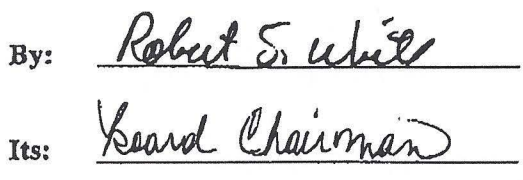 By: Robert S. White
Its: Board Chairman